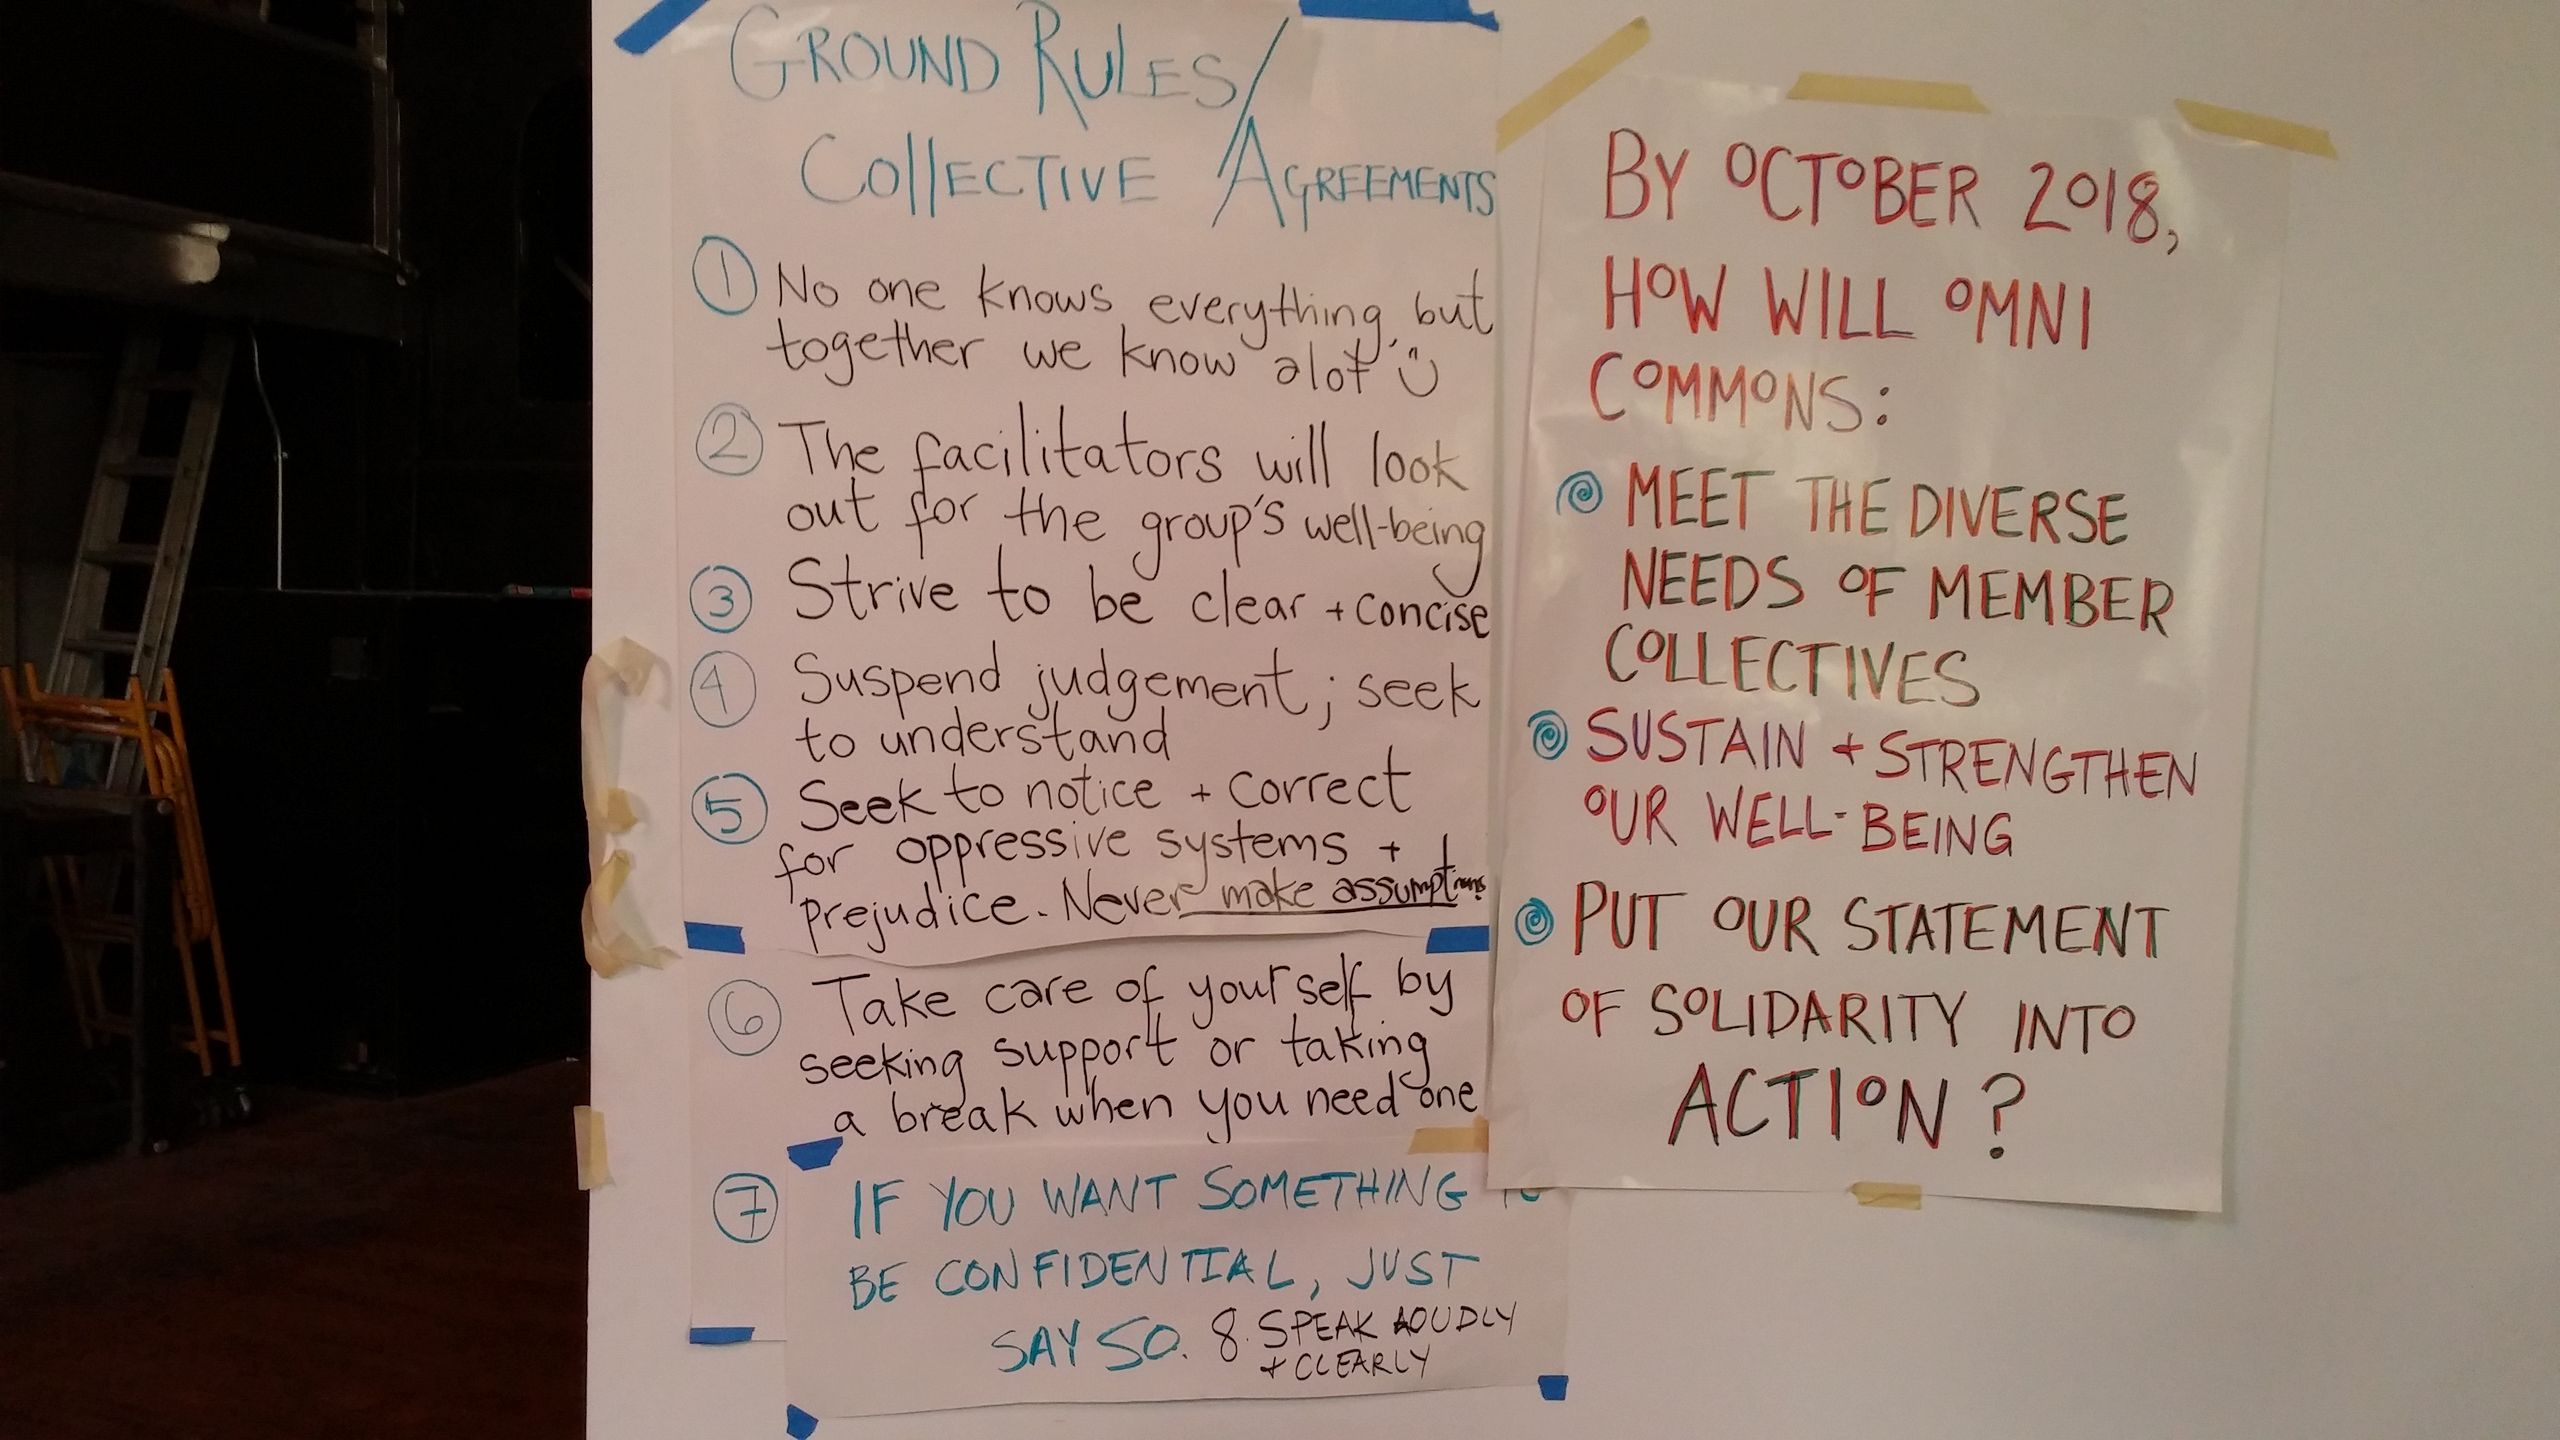 GROUND RULES/
COLLECTIVE AGREEMENTS
1 No one knows everything, but
together we know alot
2 The facilitators will look
out for the group's well-being
3 Strive to be clear + concise
4 Suspend judgement; seek
to understand
5 Seek to notice + correct
for oppressive systems +
prejudice. Never make assumptions
6 Take care of yourself by
seeking support or taking
a break when you need one
7 IF YOU WANT SOMETHING TO
BE CONFIDENTIAL, JUST
SAY SO. 8. SPEAK LOUDLY
+ CLEARLY
BY OCTOBER 2018,
HOW WILL OMNI
COMMONS:
MEET THE DIVERSE
NEEDS OF MEMBER
COLLECTIVES
SUSTAIN + STRENGTHEN
OUR WELL-BEING
PUT OUR STATEMENT
OF SOLIDARITY INTO
ACTION?